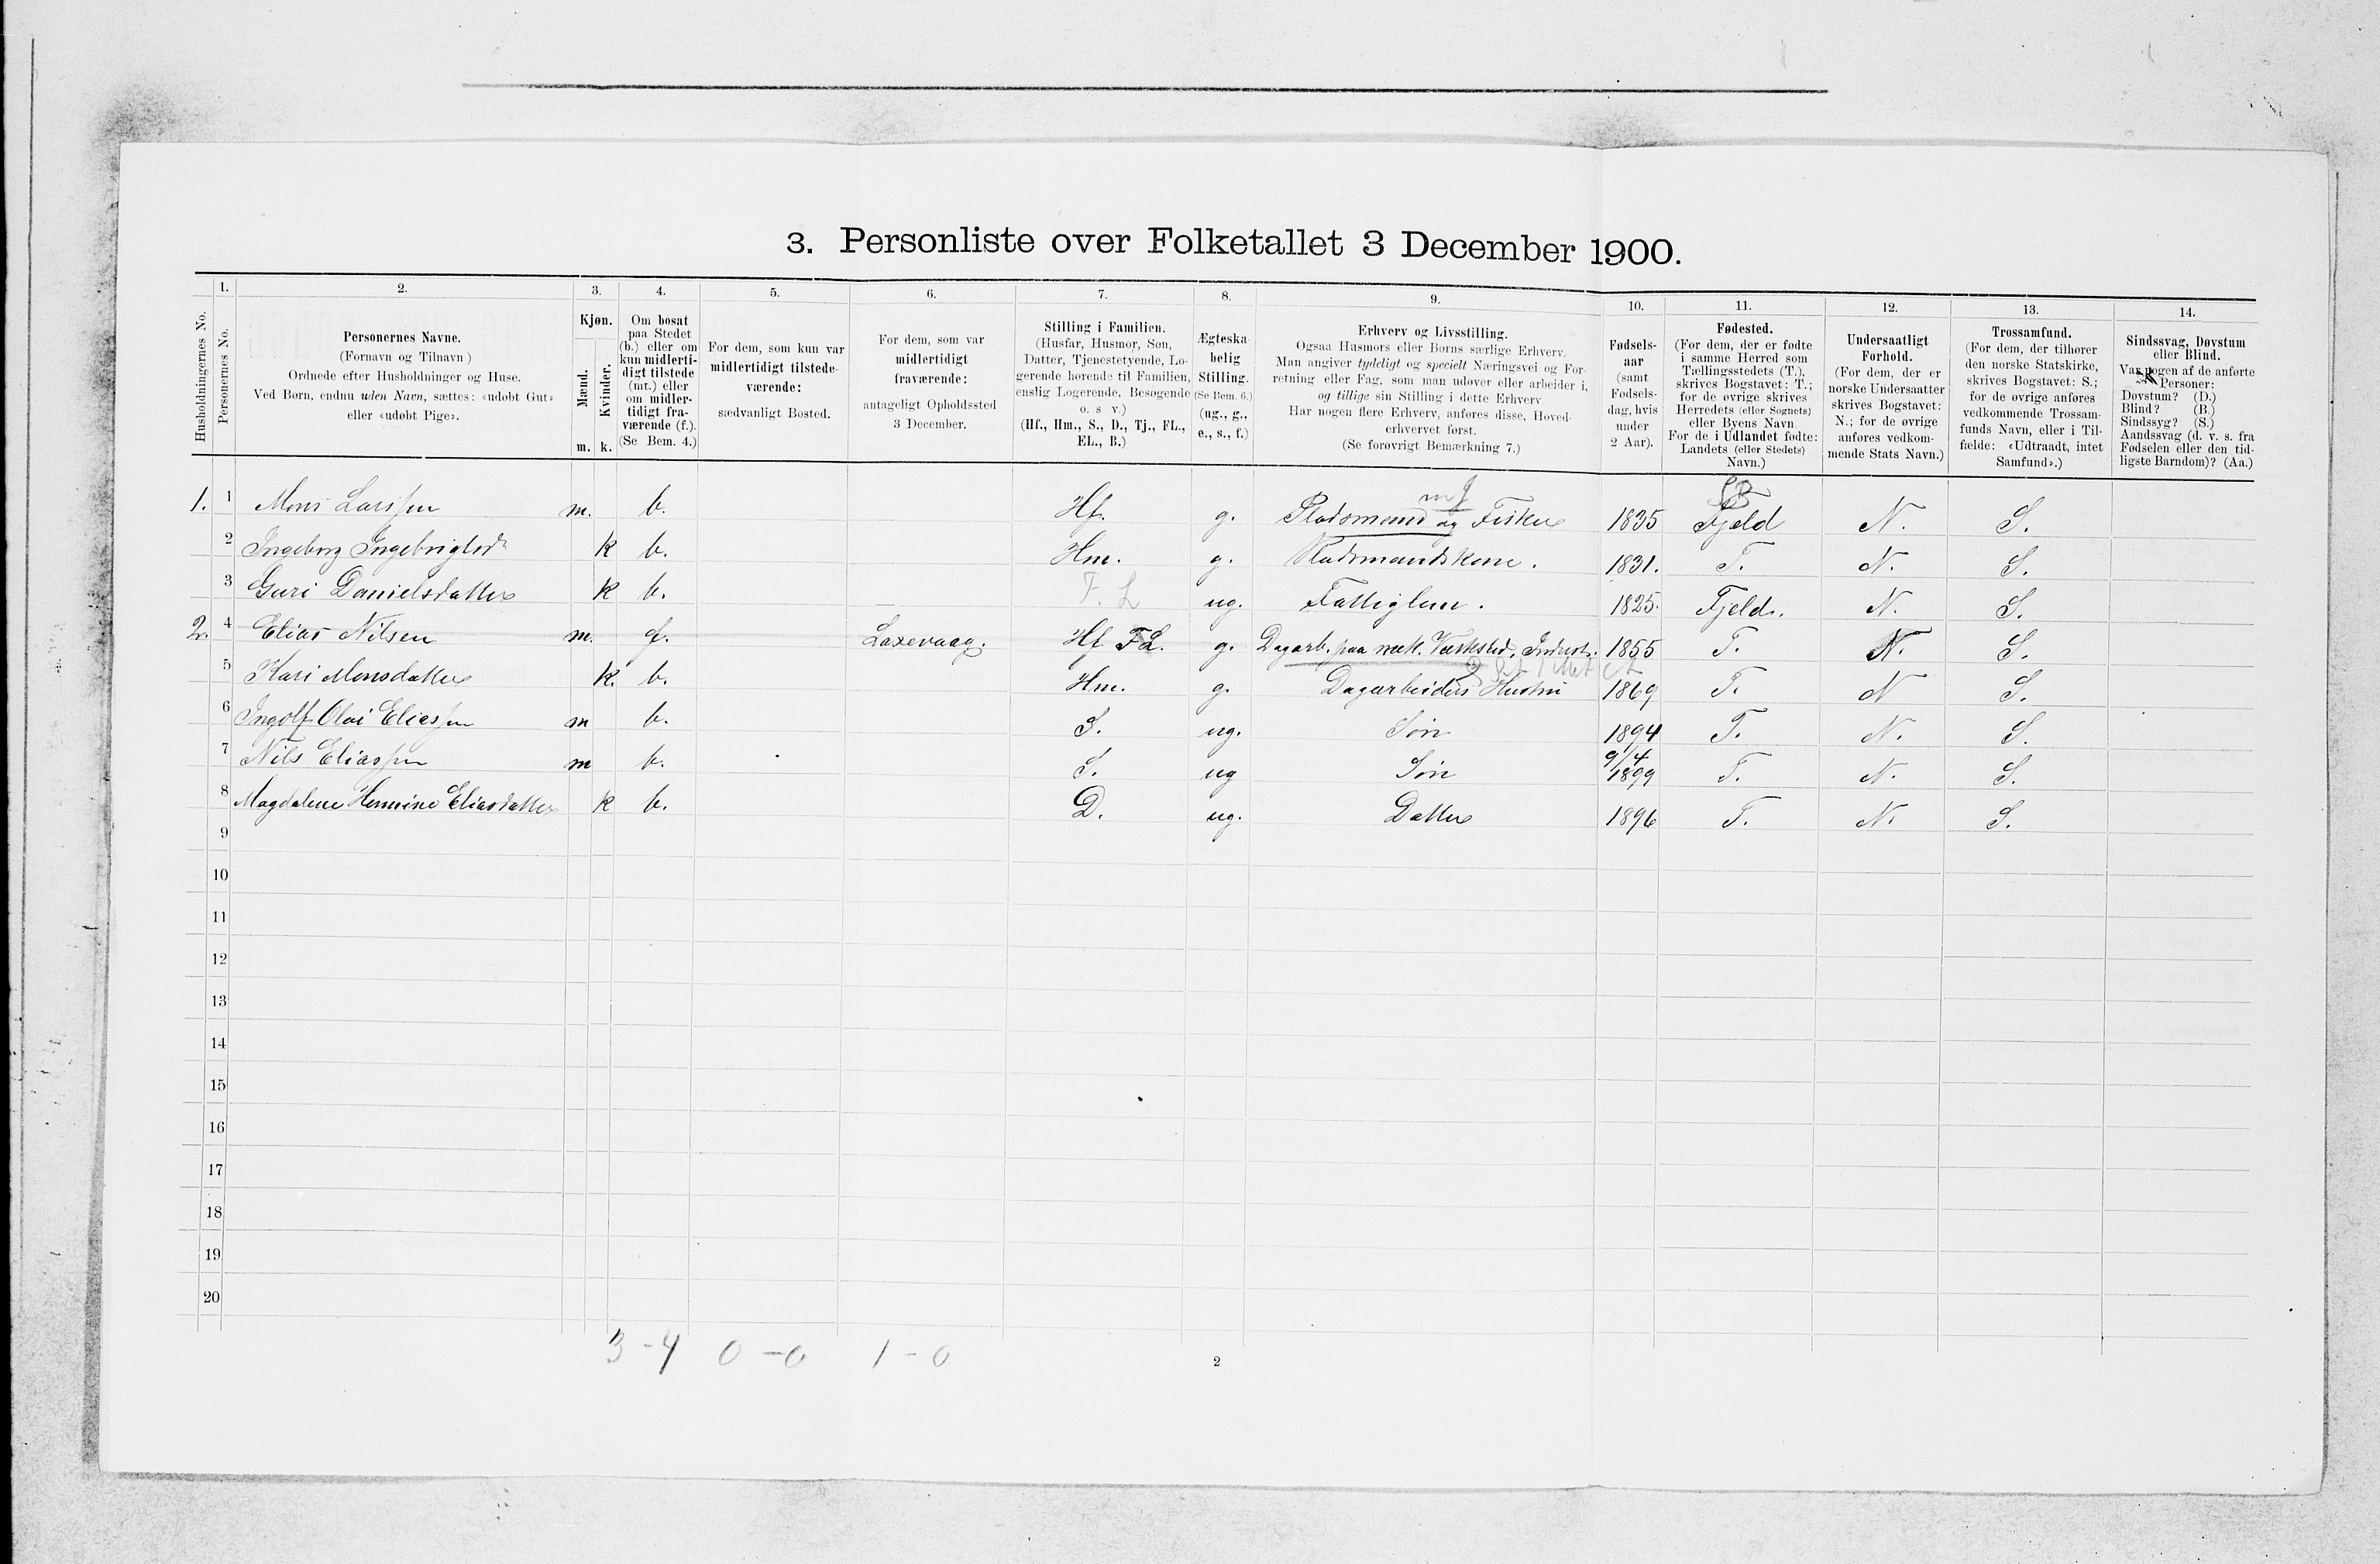 3. Personliste over Folketallet 3 December 1900.
Husholdningernes No.
1.
Personernes No.
2.
Personernes Navne.
(Fornavn og Tilnavn)
Ordnede efter Husholdninger og Huse.
Ved Børn, endnu uden Navn, sættes: «udøbt Gut»
eller «udøbt Pige».
3.
Kjøn.
Mænd.
Kvinder.
m. k.
4.
Om bosat
paa Stedet
(b.) eller om
kun midlerti-
digt tilstede
(mt.) eller
om midler-
tidigt fra-
værende (f.).
(Se Bem. 4.)
5.
For dem, som kun var
midlertidigt tilstede-
værende:
sædvanligt Bosted.
6.
For dem, som var
midlertidigt
fraværende:
antageligt Opholdssted
3 December.
7.
Stilling i Familien.
(Husfar, Husmor, Søn,
Datter, Tjenestetyende, Lo-
gerende hørende til Familien,
enslig Logerende, Besøgende
o. s. v.)
(Hf., Hm., S., D., Tj., FL.,
EL., B.)
8.
Ægteska-
belig
Stilling.
(Se Bem. 6.)
(ug., g.,
e., s., f.)
9.
Erhverv og Livsstilling.
Ogsaa Husmors eller Børns særlige Erhverv.
Man angiver tydeligt og specielt Næringsvei og For-
retning eller Fag, som man udøver eller arbeider i,
og tillige sin Stilling i dette Erhverv
Har nogen flere Erhverv, anføres disse, Hoved-
erhvervet først.
(Se forøvrigt Bemærkning 7.)
10.
Fødsels-
aar
(samt
Fødsels-
dag, hvis
under
2 Aar).
11.
Fødested.
(For dem, der er fødte
i samme Herred som
Tællingsstedets (T.),
skrives Bogstavet: T.;
for de øvrige skrives
Herredets (eller Sognets)
eller Byens Navn
For de i Udlandet fødte:
Landets (eller Stedets)
Navn.)
12.
Undersaatligt
Forhold.
(For dem, der er
norske Undersaatter
skrives Bogstavet:
N.; for de øvrige
anføres vedkom-
mende Stats Navn.)
13.
Trossamfund.
(For dem, der tilhører
den norske Statskirke,
skrives Bogstavet: S.;
for de øvrige anføres
vedkommende Trossam-
funds Navn, eller i Til-
fælde: «Udtraadt, intet
Samfund».)
14.
Sindssvag, Døvstum
eller Blind.
Var nogen af de anførte
Personer:
Døvstum? (D.)
Blind? (B.)
Sindssyg? (S.)
Aandssvag (d. v. s. fra
Fødselen eller den tid-
ligste Barndom)? (Aa.)
1. 1 Mons Larssen m. b. Hf. g. Pladsmand og Fisker 1835 Fjeld N. S.
2 Ingeborg Ingebrigtsd k b. Hm. g. Pladsmandskone. 1831. T. N. S.
3 Guri Danielsdatter k b. F. L ug. Fattiglem. 1825. Fjeld. N. S.
2. 4 Elias Nilsen m. f. Laxevaag. Hf FL. g. Dagarb. paa mek. Værksted, Industr. 1855 T. N. S.
5 Kari Monsdatter k. b. Hm. g. Dagarbeiders Hustru 1869 T. N S.
6 Ingolf Olai Eliassen m b. S. ug. Søn 1894 T. N. S.
7 Nils Eliassen m b. S. ug Søn 9/4 1899 T. N. S.
8 Magdalene Hermine Eliasdatter k b. D. ug. Datter 1896 T. N. S.
9
10
11
12
13
14
15
16
17
18
19
20
3-4 0-0 1-0
2